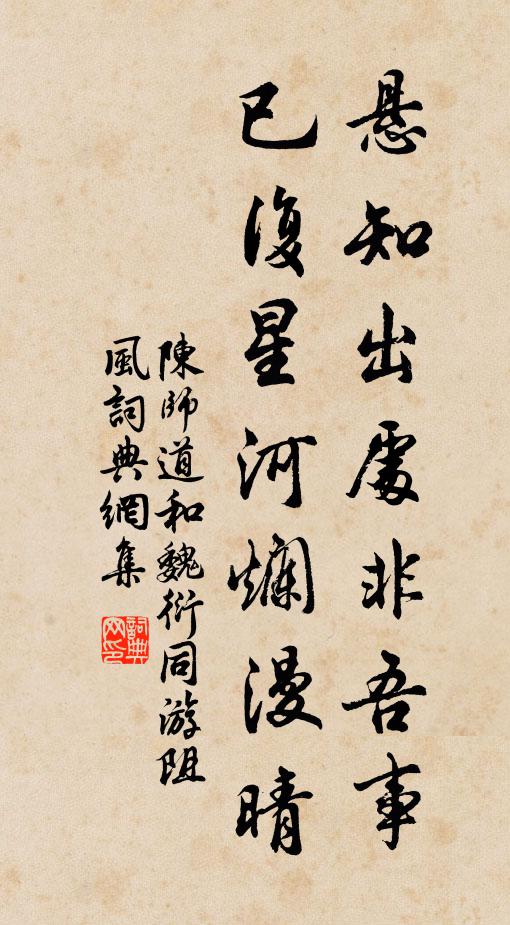 悬知出處非吾事
已復星河爛漫晴
陳師道和魏衍同游阻
風詞典網集
詞典
网印